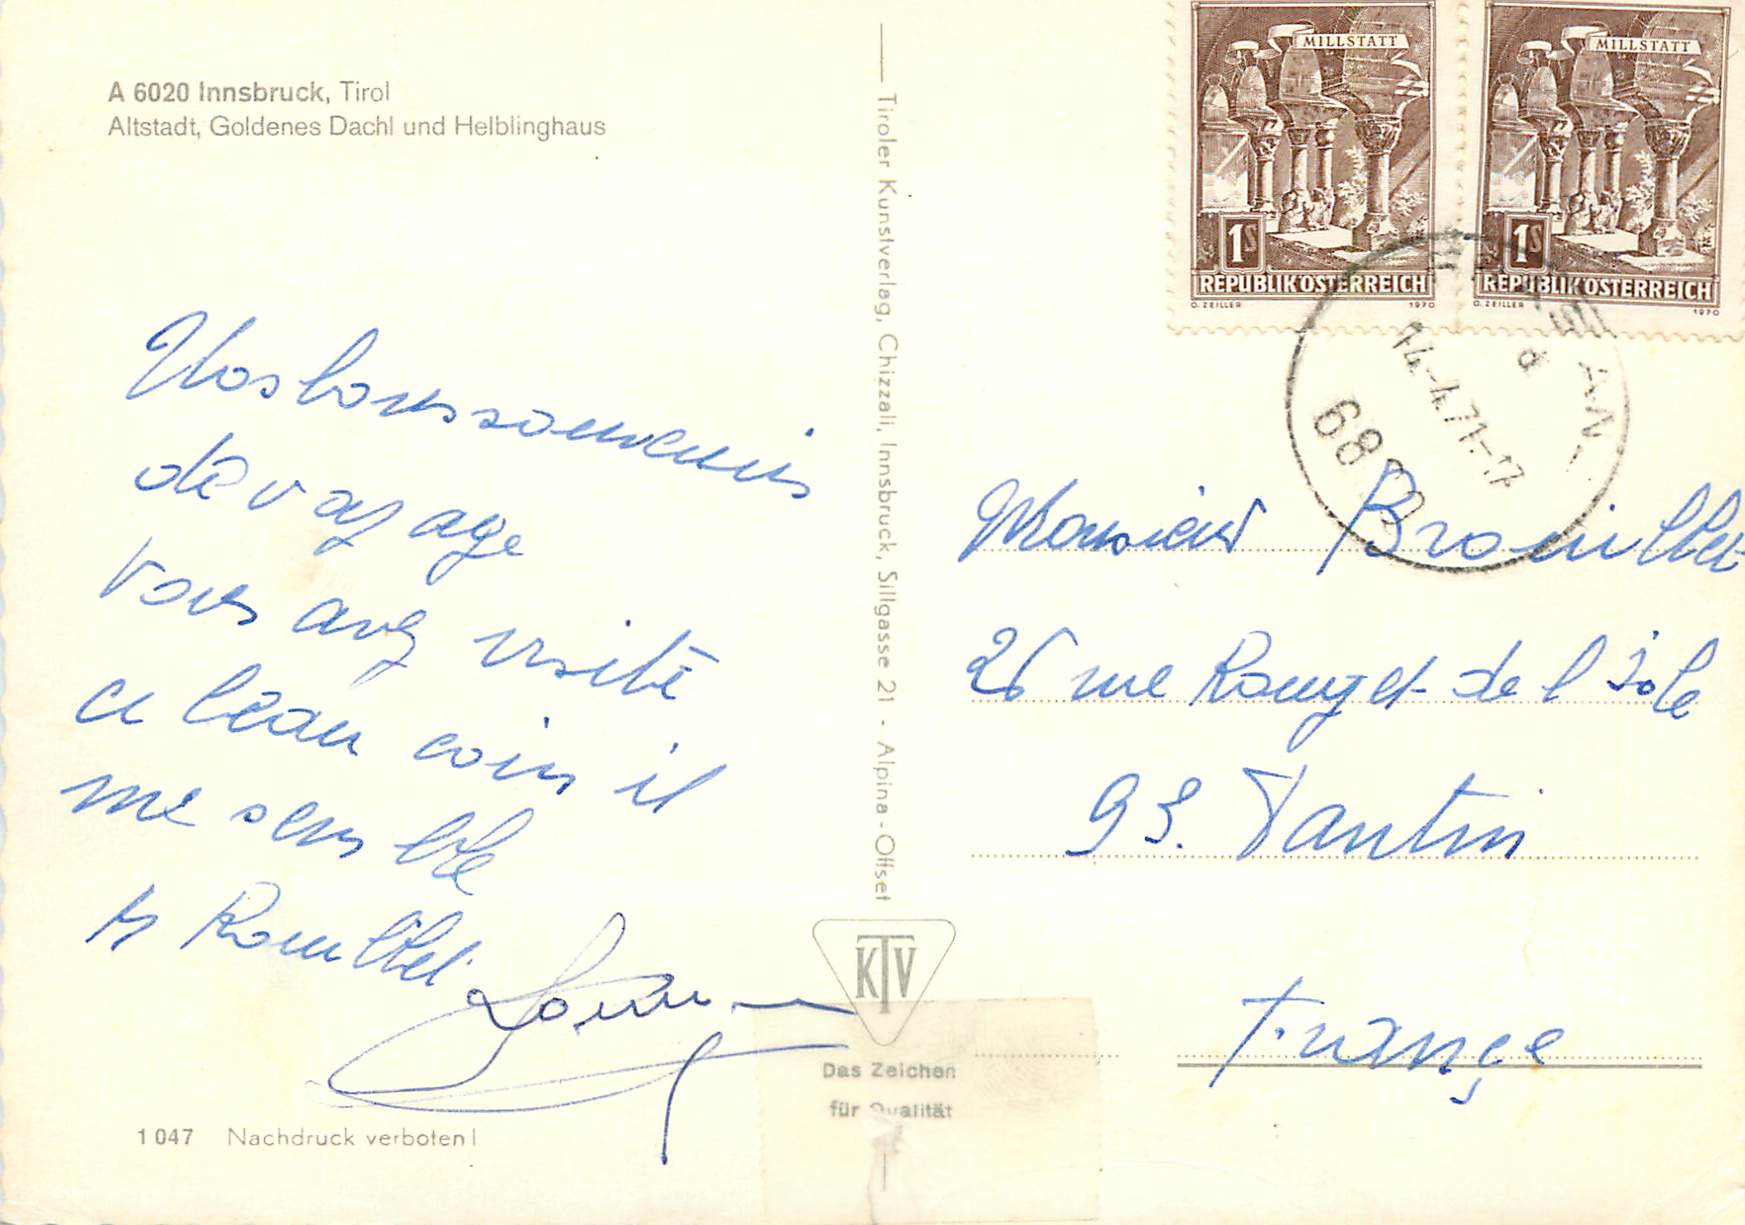 A 6020 Innsbruck, Tirol
Altstadt, Goldenes Dachl und Helblinghaus
Nos bons souvenirs
de voyage
vous avez visité
ce beau coin il
me semble
1 047 Nachdruck verboten!
Tiroler Kunstverlag, Chizzali, Innsbruck, Sillgasse 21 - Alpina-Offset
KTV
Das Zeichen
für Qualität
MILLSTATT
1S
REPUBLIK ÖSTERREICH
O. ZEILLER 1970
MILLSTATT
1S
REPUBLIK ÖSTERREICH
O. ZEILLER 1970
14.-4.71-17
Monsieur
26 rue Rouget de l'Isle
93. Pantin
France